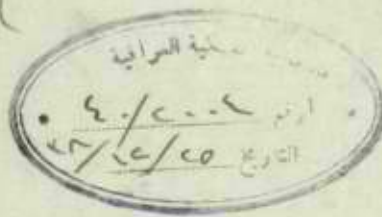 العراقية
الرقم ٤٠/٢٠٠٤
التاريخ ٣٨/١٢/٢٥